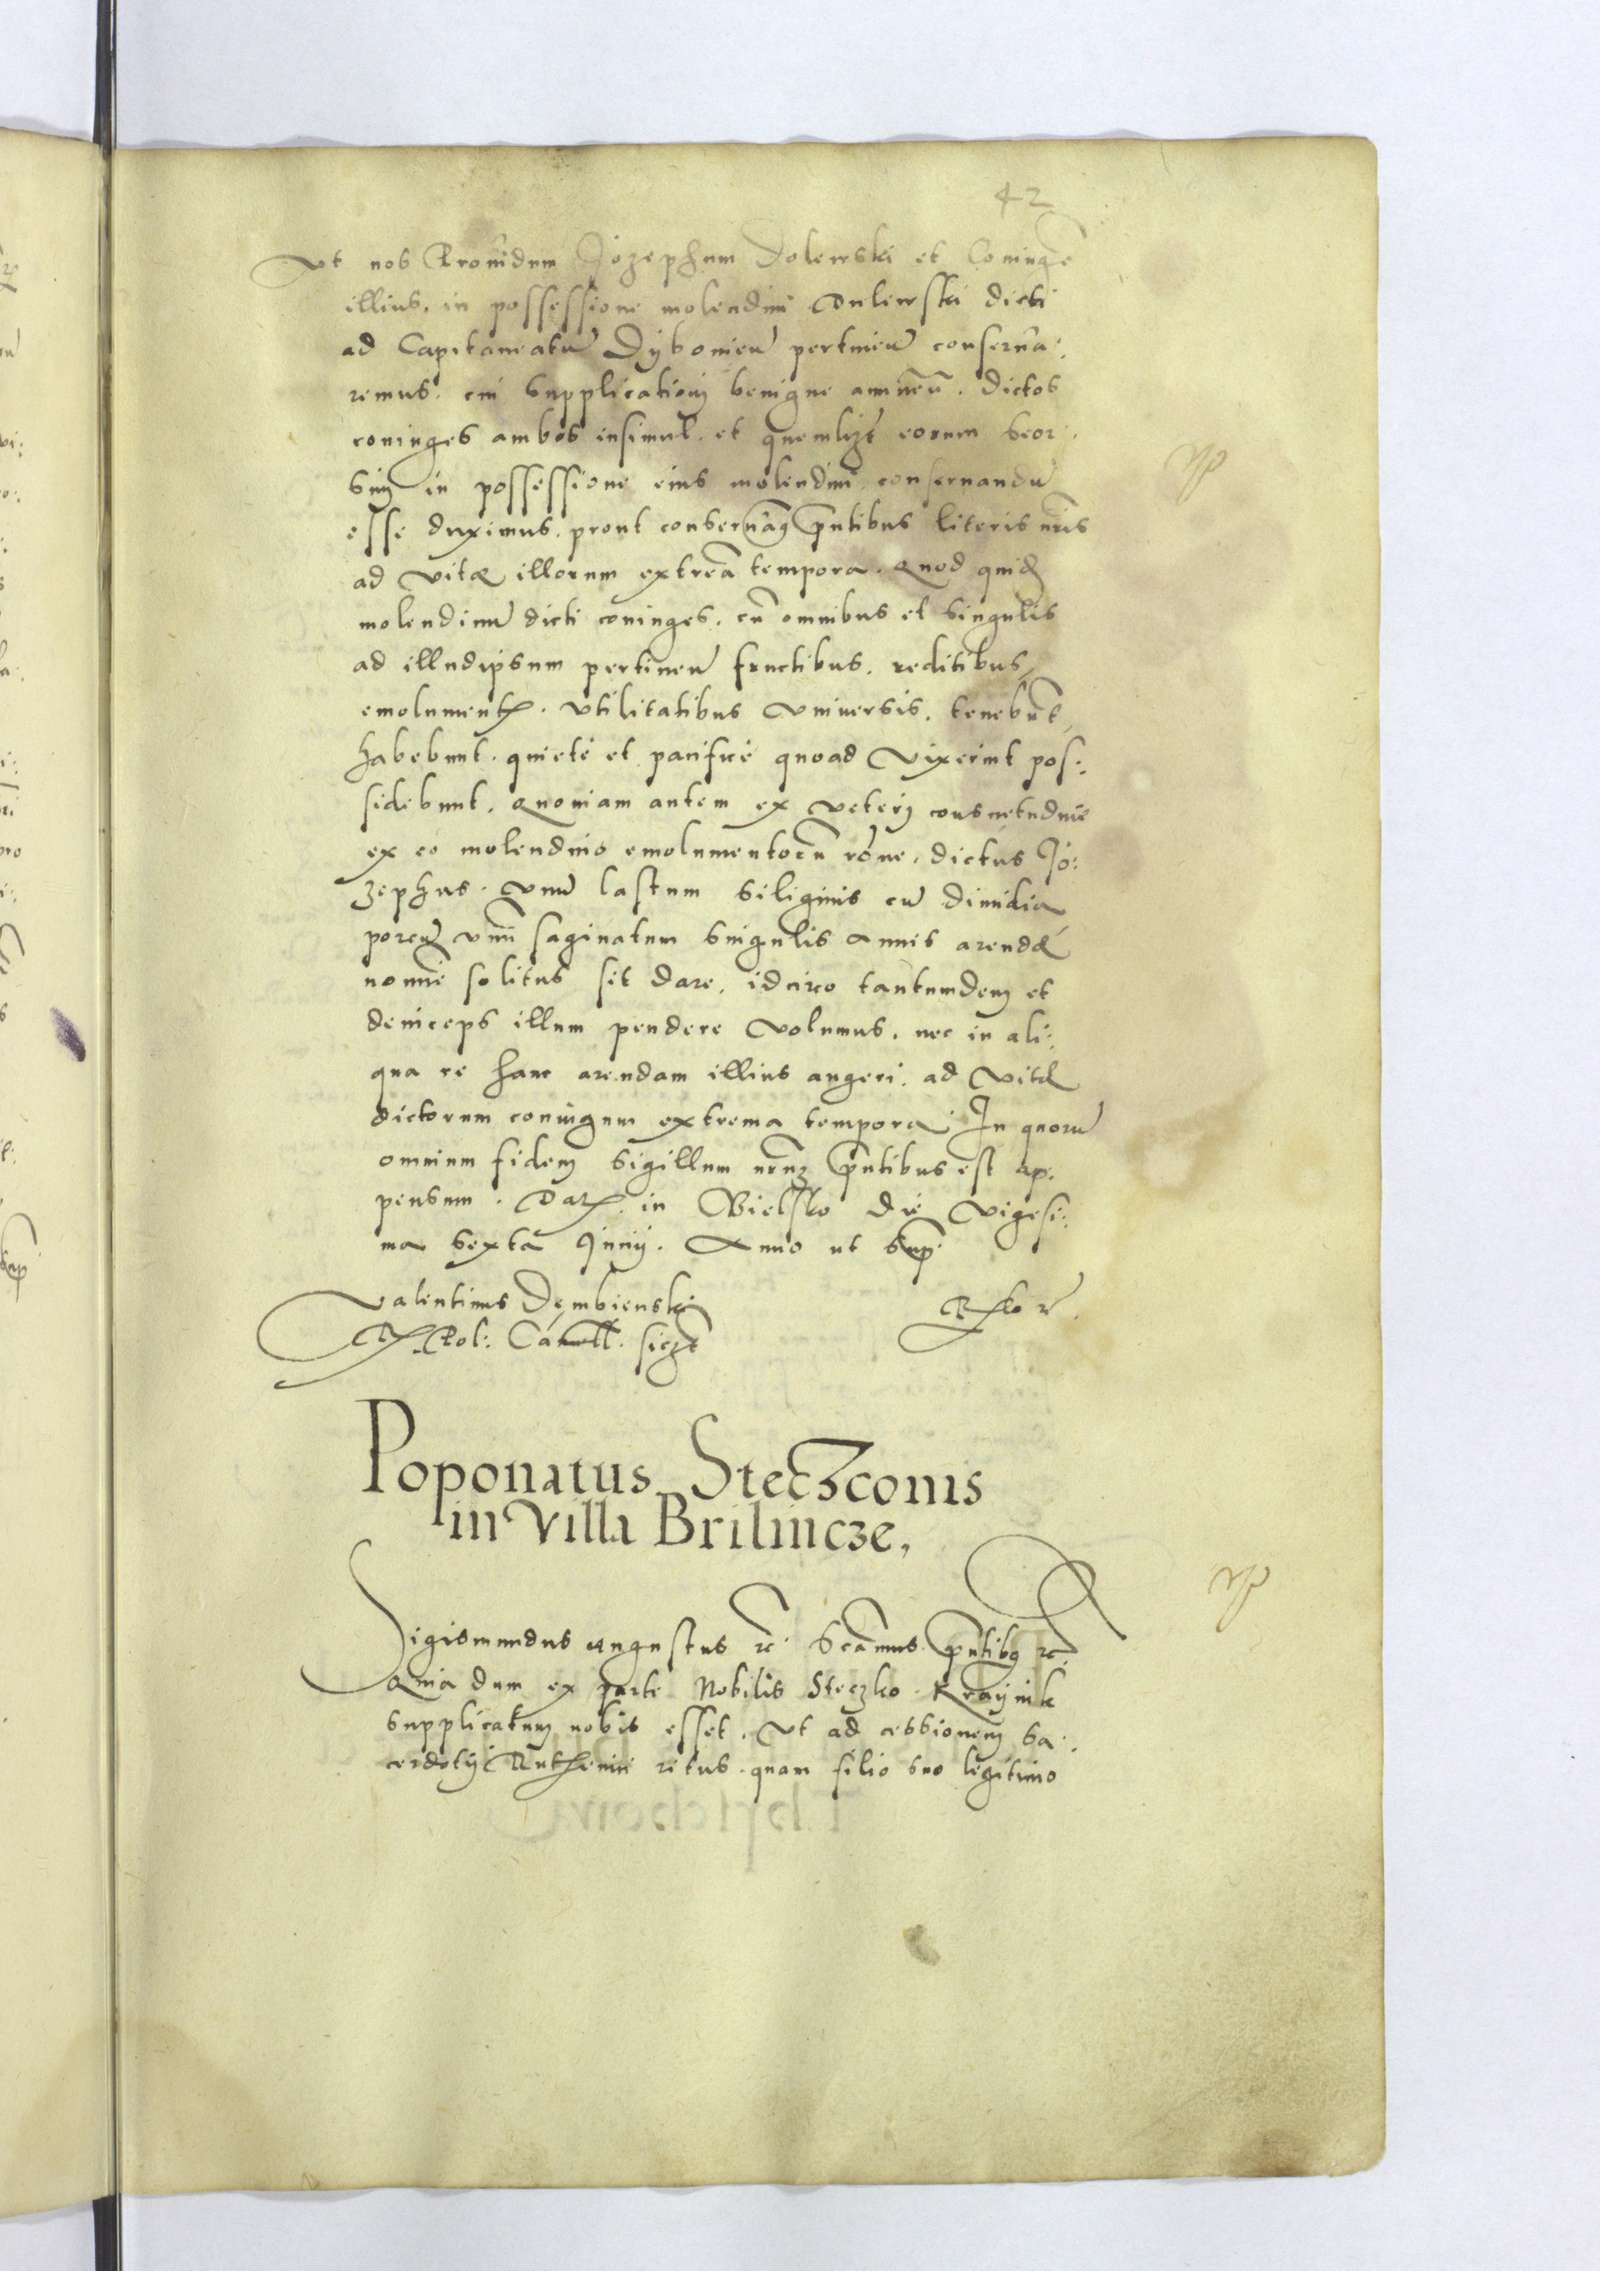 42
Ut nos Providum Jozephum Dolewski et Coniugẽ
illius, in possessione molendini Dulewski dicti
ad Capitaneatũ Dybonieñ pertineñ conserva:
remus. cui supplicationj benigne annueñ. dictos
coniuges ambos insimul. et quemlizt eorum seor:
sim in possessione eius molendini conservandũ
esse duximus. prout conservamꝰ pñtibus literis nr̃is
ad vitæ illorum extrẽa tempora. Quod quidẽ
molendinũ dicti coniuges. cũ omnibus et singulis
ad illudipsum pertineñ fructibus. reditibus,
emolument. utilitatibus universis. tenebũt,
habebunt. quietè et pacificè quoad vixerint pos:
sidebunt. Quoniam autem ex veterj consuetudine
ex eo molendino emolumentorũ rõne. dictus Jo:
zephus. unũ lastum siliginis cũ dimidia
porcũ unũ saginatum singulis Annis arendæ
nomine solitus sit dare. idcirco tantumdem et
deinceps illum pendere volumus. nec in ali:
qua re hanc arendam illius augeri. ad vitæ
dictorum coniugum extrema tempora. In quorũ
omnium fidem sigillum nr̃um pñtibus est ap:
pensum. Dat. in Bielsko Die vigesi:
ma sexta Junij. Anno ut sup.
Valentinus Dembienski
R. Pol: Cancell. sszt
Rlo r.
Poponatus Steczconis
in Villa Brilincze,
Sigismundus Augustus rc̃. Scãmus pñtibꝰ rc̃.
Quia dum ex parte Nobilis Steczko Kraynik
supplicatum nobis esset. Ut ad cessionem sa:
cerdotij Ruthenici ritus. quam filio suo legitimo